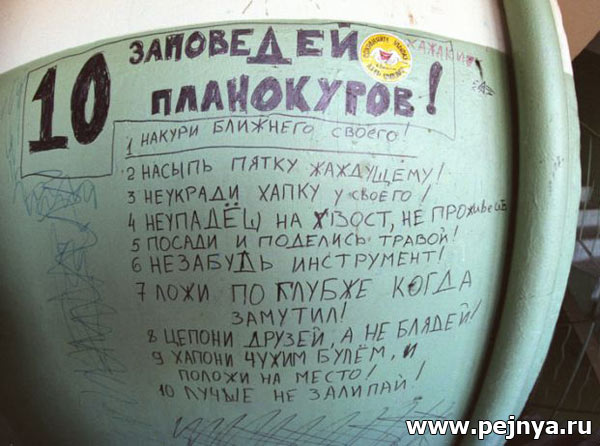 10 ЗАПОВЕДЕЙ
ПЛАНОКУРОВ!
1 НАКУРИ БЛИЖНЕГО СВОЕГО!
2 НАСЫПЬ ПЯТКУ ЖАЖДУЩЕМУ!
3 НЕУКРАДИ ХАПКУ У СВОЕГО!
4 НЕУПАДЁШ НА ХВОСТ, НЕ ПРОЖИВЁШ
5 ПОСАДИ И ПОДЕЛИСЬ ТРАВОЙ!
6 НЕЗАБУДЬ ИНСТРУМЕНТ!
7 ЛОЖИ ПО ГЛУБЖЕ КОГДА
ЗАМУТИЛ!
8 ЦЕПОНИ ДРУЗЕЙ, А НЕ БЛЯДЕЙ!
9 ХАПОНИ ЧУЖИМ БУЛЁМ, И
ПОЛОЖИ НА МЕСТО!
10 ЛУЧЫЕ НЕ ЗАЛИПАЙ!
www.pejnya.ru